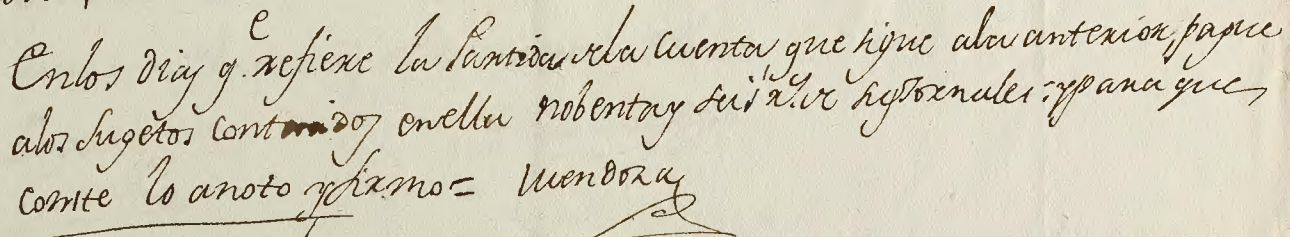 En los dias q.e refiere la Partida de la Cuenta que sigue ala anterior, pague
alos Sugetos contenidos en ella nobenta y seis r.s de sus Jornales: y para que
conste lo anoto y firmo = Mendoza